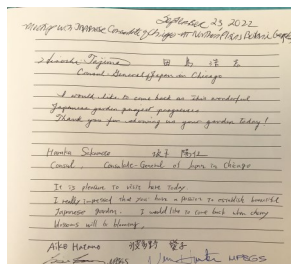 September 23, 2022
Meeting with Japanese Consulate of Chicago at Northern Plains Botanic Garden
Tajima 田島 浩志
Consul-General of Japan in Chicago
I would like to come back as this wonderful
Japanese garden project progresses
Thank you for showing us your garden today!
Consul, Consulate-General of Japan in Chicago
It is pleasure to visit here today
I really impressed that you have a passion to establish beautiful
Japanese garden. I would like to come back when cherry
blossoms will be blooming.
Aiko Hatano 波多野 愛子
NPBGS NPBGS